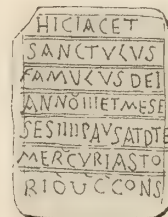 HIC IACET
SANCTVLVS
FAMVLVS DEI
ANNO IIII ET MESE
SES IIII PAVSAT D TE
MERCVRI ASTO
RIO V C CONS